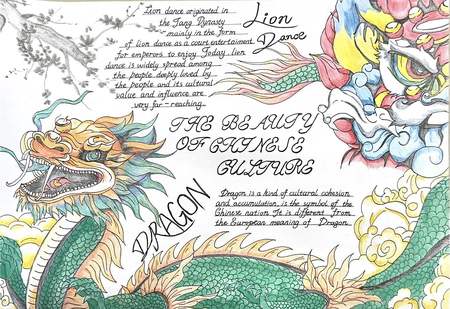 Lion dance originated in
the Tang Dynasty
mainly in the form
of lion dance as a court entertaiment
for emperors to enjoy. Today. lion
dance is widely spread among
the people deeply loved by
the people and its cultural
value and influence are
very far-reaching.
Lion
Dance
THE BEAUTY
OF CHINESE
CULTURE
DRAGON
Dragon is a kind of cultural cohesion
and accumulation, is the symbol of the
Chinese nation. It is different from
the European meaning of Dragon.